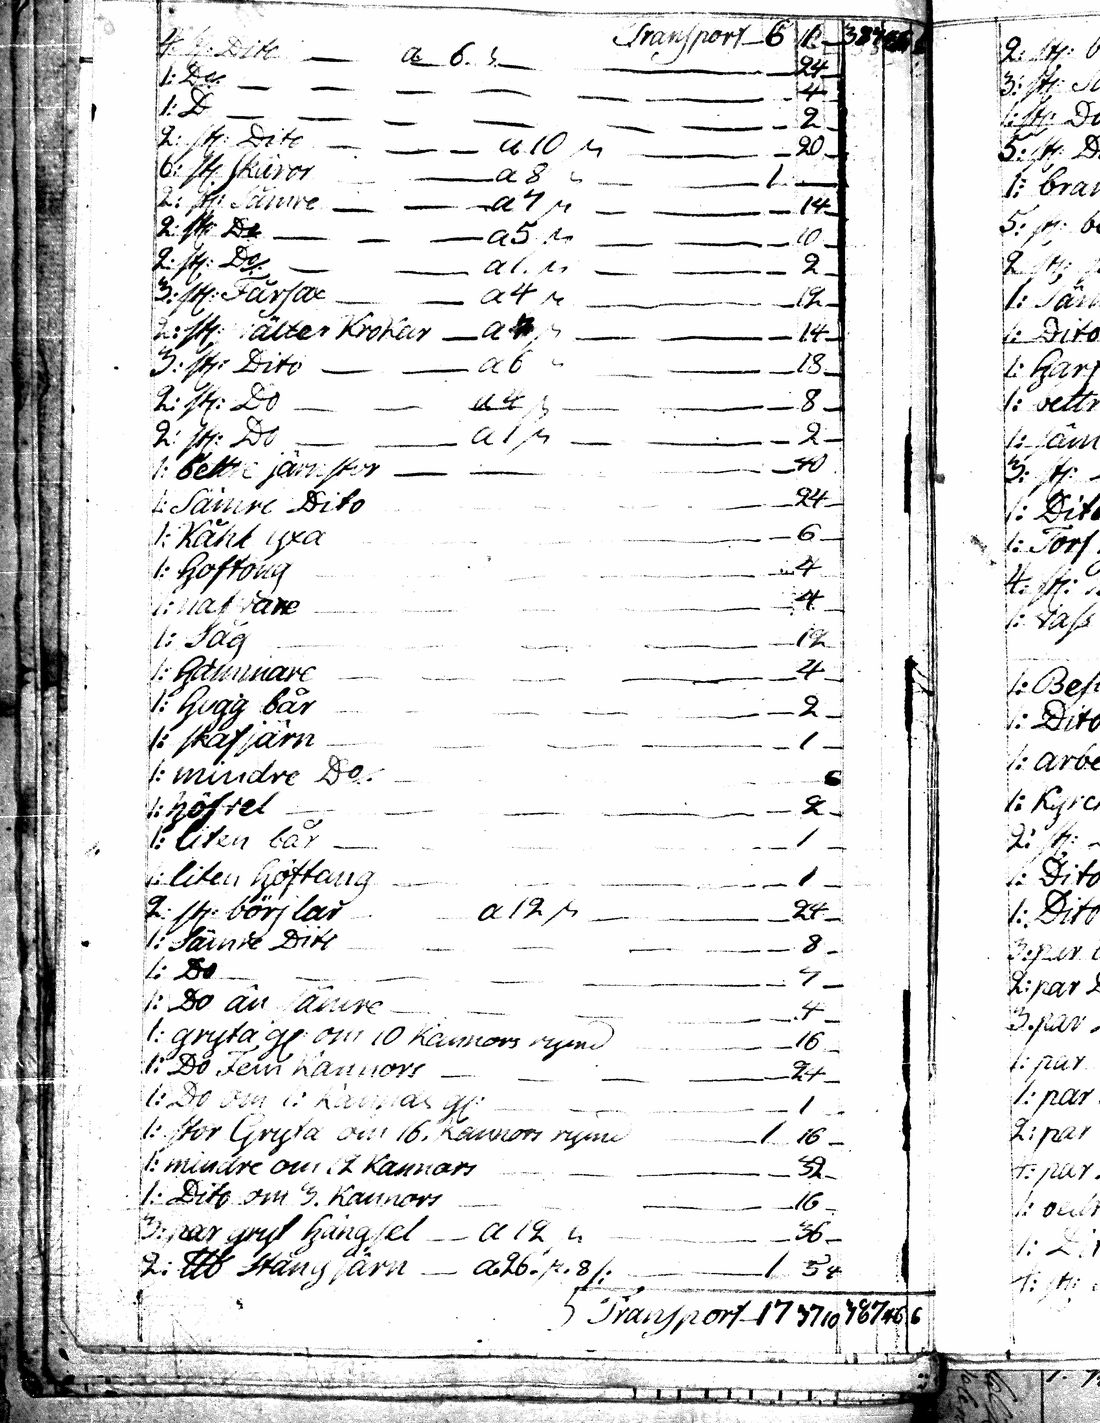 Transport 6 12 387 46 6
4: st: Dito a 6. s 24
1: Do 4
1: D 2
2: st: Dito a 10 s 20
6: st. skåror a 8 s 1
2: st: Sämre a 7 s 14
2: st: Do a 5 s 10
2: st: Do a 1. s 2
3: st: Fårsax a 4 s 12
2: st: älter Krokar a 7 s 14
3: st: Dito a 6 18
2: st: Do a 4 s 8
2: st: Do a 1 s 2
1: bettre järnstör 40
1: Sämre Dito 24
1: Kåhl yxa 6
1: Hoftong 4
1: nafvare 4
1: Såg 12
1: Hammare 4
1: Hugg bår 2
1: skafjärn 1
1: mindre Do. 6
1: höfvel 2
1: liten bår 1
1: liten Hoftang 1
2. st: börjlar a 12 s 24
1: Sämre Dito 8
1: Do 7
1: Do än sämre 4
1: gryta gl: om 10 Kannors rymd 16
1: Do Fem Kannors 24
1: Do om 1: Kannas gl: 1
1: stor Gryta om 16. Kannors rymd 1 16
1: mindre om 12 Kannors 32
1: Dito om 3. Kannors 16
3: par gryt Hängsel a 12 s 36
2: Lltt Stång järn a 26. s. 8/. 1 5 4
Transport 17 37 10 387 46 6
2. st: b
3: st:
1: st: Do
5: st: D
1: bran
5: st: be
2 st:
1: Säm
1: Dito
1: Harf
1: bettr
1: säm
3: st:
1: Dito
1: Torf
4: st:
1:
1: Bes
1: Dito
1: arbe
1: Kyrc
2: st:
1: Dito
1: Dito
3: par
2: par D
3. par
1: par
1: par
2: par
1: par
1:
1: Di
st: